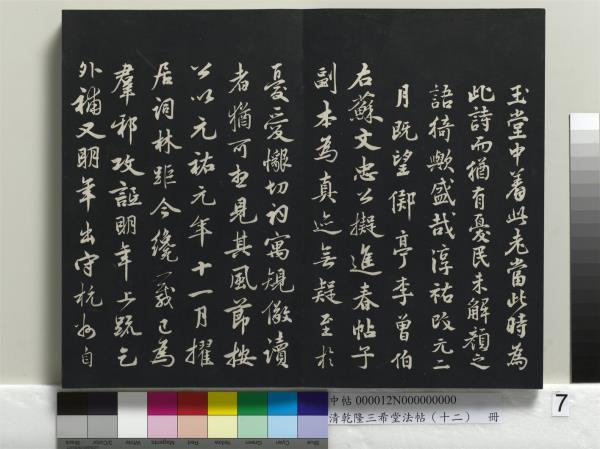 玉堂中着此老當此時為
此詩而猶有憂民未解顏之
語猗歟盛哉淳祐改元二
月既望鄮亭李曾伯
右蘇文忠公擬進春帖子
副本為真迹無疑至於
憂愛懇切初寓規儆讀
者猶可想見其風節按
公以元祐元年十一月擢
居詞林距今纔一歲已為
羣邪攻詆明年上疏乞
外補又明年出守杭州自
中帖 000012N000000000
清乾隆三希堂法帖(十二) 冊
7
Blue
Cyan
Green
Yellow
Red
Magenta
White
3/Color
Black